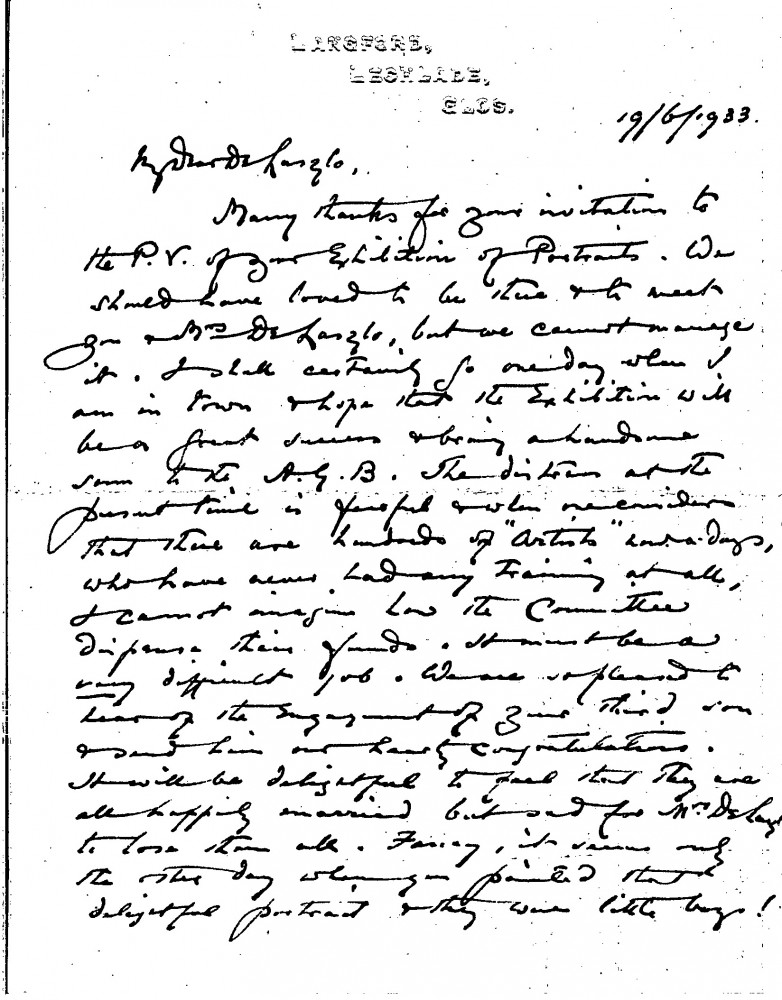 LANGFORD,
LECHLADE,
GLOS.
19/6/1933.
My dear De Laszlo,
Many thanks for your invitation to
the P.V. of your Exhibition of Portraits. We
should have loved to be there & to meet
you & Mrs De Laszlo, but we cannot manage
it. I shall certainly go one day when I
am in town & hope that the Exhibition will
be a great success & bring a handsome
sum to the A.G.B. The distress at the
present time is fearful & when one considers
that there are hundreds of "Artists" now-a-days,
who have never had any training at all,
I cannot imagine how the Committee
dispense their funds. It must be a
very difficult job. We are so pleased to
hear of the Engagement of your third son
& send him our hearty congratulations.
It will be delightful to feel that they are
all happily married but sad for Mrs De Laszl
to lose them all. Fancy, it seems only
the other day when you painted that
delightful portrait & they were little boys!